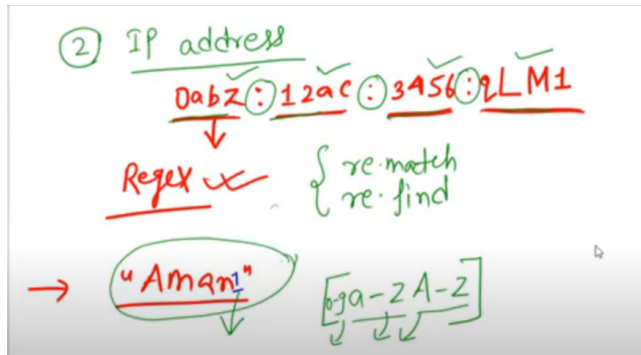 2 IP address
0abz : 12ac : 3456 : qLM1
Regex
{ re.match
re.find
→ "Aman1"
[0-9a-zA-Z]